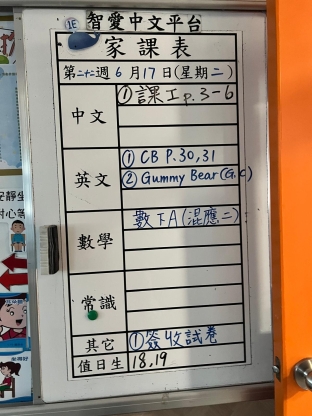 1E 智愛中文平台
家課表
第二十二週 6月17日(星期二)
中文
①課工p.3-6
英文
①CB P.30,31
②Gummy Bear(G.C)
數學
數下A(混應二)
常識
其它
①簽收試卷
值日生
18,19
安靜坐
耐心等